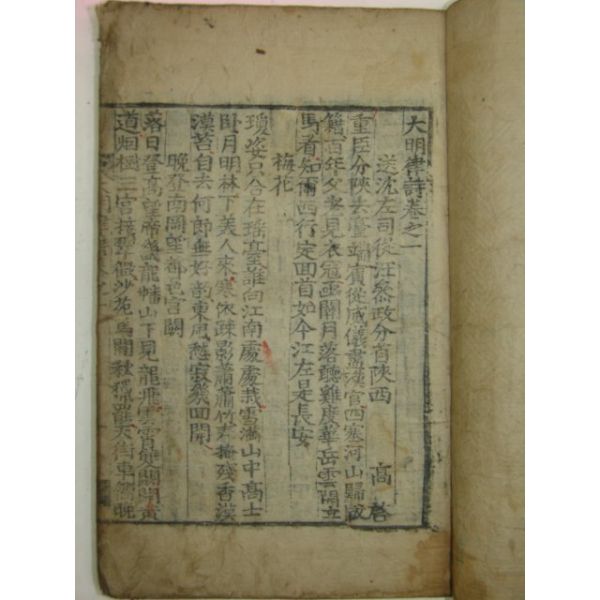 大明律詩卷之一
送沈左司從汪參政分省陝西 高啓
重臣分陝去臺端賓從威儀盡漢官四塞河山歸版
籍百年父老見衣冠函關月落聽雞度華岳雲開立
馬看知爾西行定回首如今江左是長安
梅花
瓊姿只合在瑤臺誰向江南處處栽雪滿山中高士
臥月明林下美人來寒依疎影蕭蕭竹春掩殘香漠
漠苔自去何郎無好韵東風愁寂幾回開
晚登南岡望都邑宮闕
落日登高望帝畿龍蟠山下見龍飛雲霄雙闕開黃
道烟樹三宮接翠微沙苑馬閑秋罷天街車晚